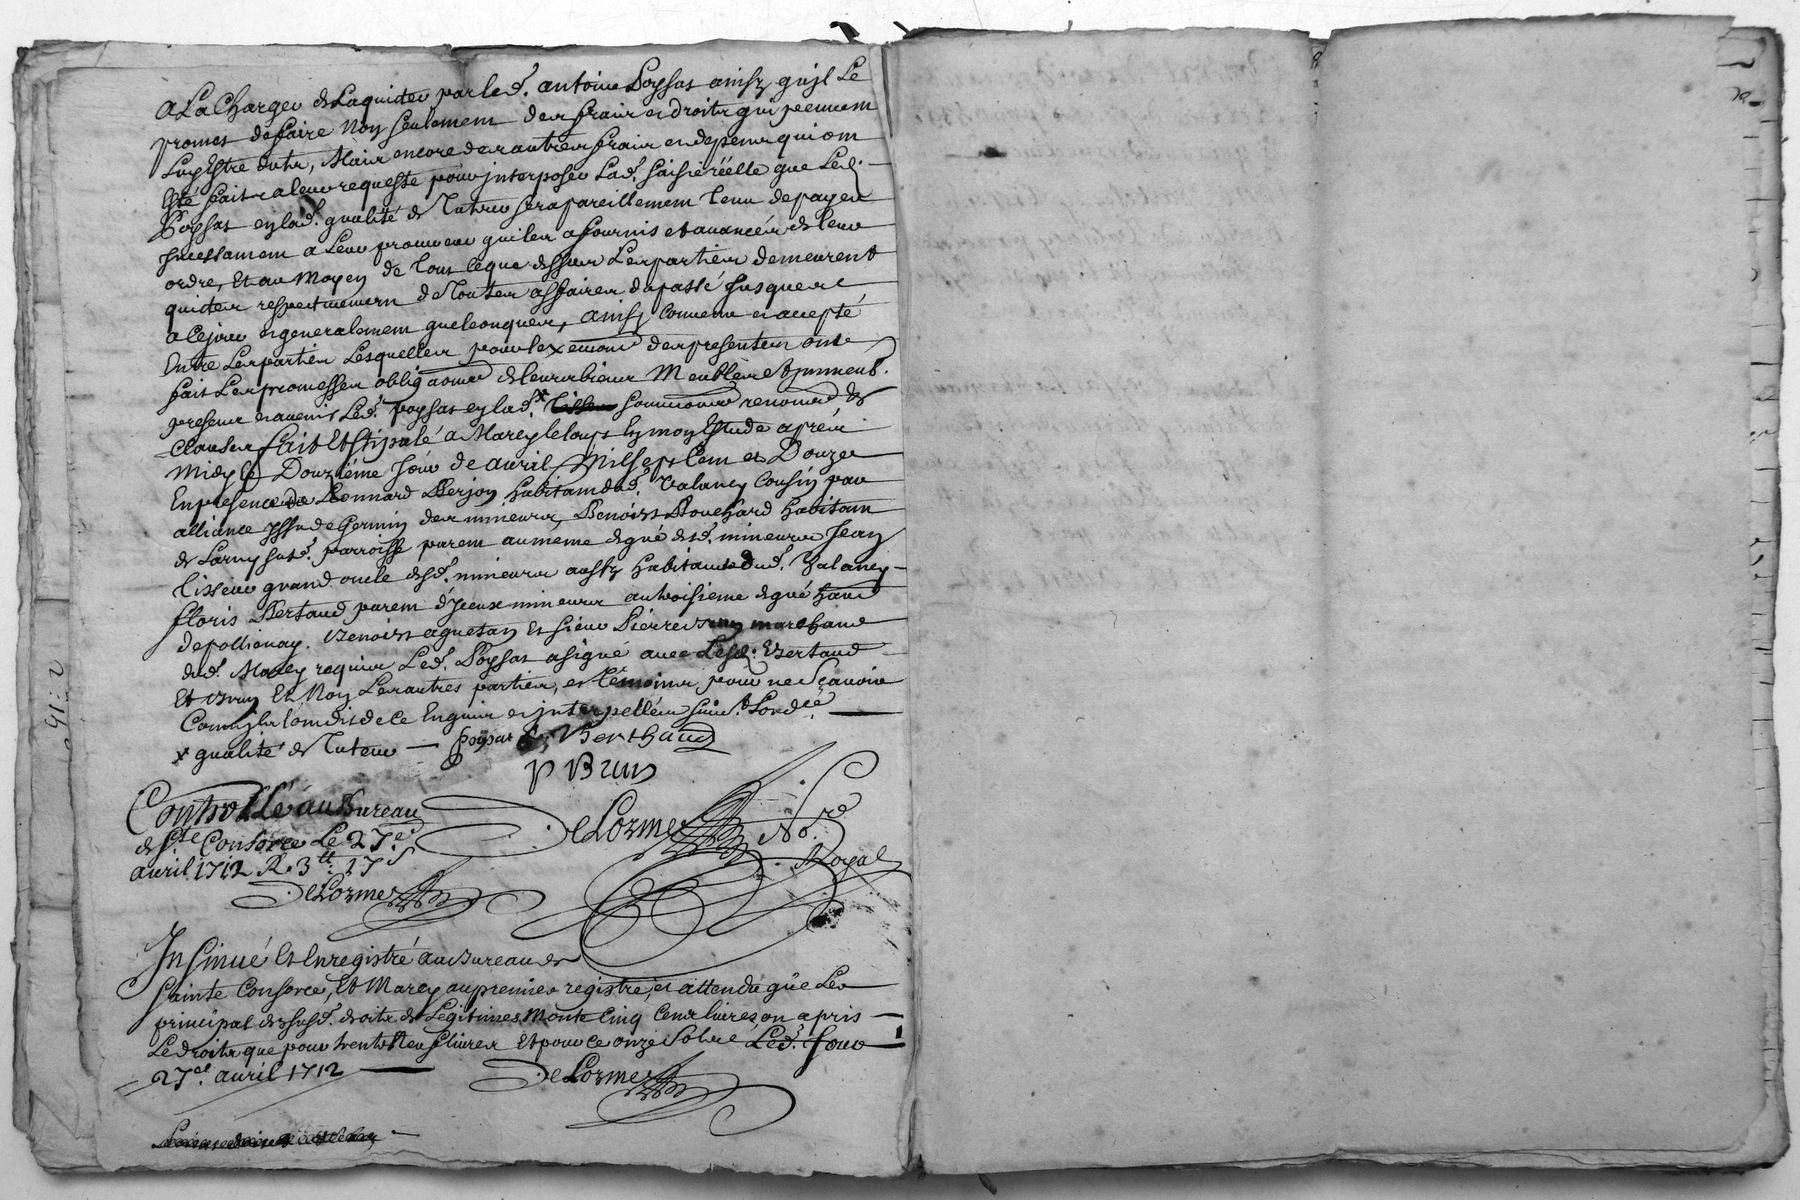 a La Charge de Laquitter par led. antoine Poyssat ainsy quil Le
promet de faire Non seulement des frais et droits qui peuvent
Luy Estre deubs, Mais encore des autres frais et depens qui ont
Esté faits a leur requeste pour interposer Lad. saisie réelle que Led.
Poyssat en lad. qualité de Tuteur sera pareillement Tenu de payer
Incessamment a Leur procureur qui les a fournis et avancés de leur
ordre, Et au Moyen de Tout ce que dessus Les parties demeurent
quittes respectivement de Toutes affaires du passé Jusques
a Ce jour et generalement quelconques, ainsy Convenu et accepté
Entre Les parties Lesquelles pour lexecution des presentes ont
fait Les promesses obligaons de leurs biens Meubles et Immeub.
presens et avenir Led. Poyssat en lad. x soumissions renoncions et
Clauses fait Et Stipulé a Marcy le loup En mon Estude apres
Midy Le Douzième Jour de avril Mil Sept Cent et Douze
En presence de Leonnard Berjon habitant dud. Valancy Cousin par
alliance Issu de Germin des mineurs, Benoist Bouchard habitant
de Larny sud. parroisse parent au meme degré desd. mineurs Jean
Tisseur grand oncle desd. mineurs aussy habitant dud. Valancy
floris Bertaud parent d'yceux mineurs au troisieme degré habit
de pollionay. Benoist aguetan Et sieur Pierre Brun marchand
dud. Marcy requis Led. Poyssat a signé avec Lesd. Bertaud
Et Brun Et Non Les autres parties, et témoins pour ne Sçavoir
Comme ils l'ont dit de ce Enquis et interpellés suivt. Lordce
x qualité de Tuteur — Poyssat Berthaud
P Brun
Controllé au Bureau
de Ste Consorce Le 27e
avril 1712 R. 3lt 17s
DeLorme Nre
Royal
DeLorme
Insinué Et Enregistré au Bureau de
sainte Consorce, Et Marcy au premier registre, et attendu que Le
principal des susd. droits de Legitimes Monte Cinq Cens livres on a pris
Le droits que pour trente Neuf livres Et pour ce onze Sols Led. Jour
27e. avril 1712
DeLorme
91:2